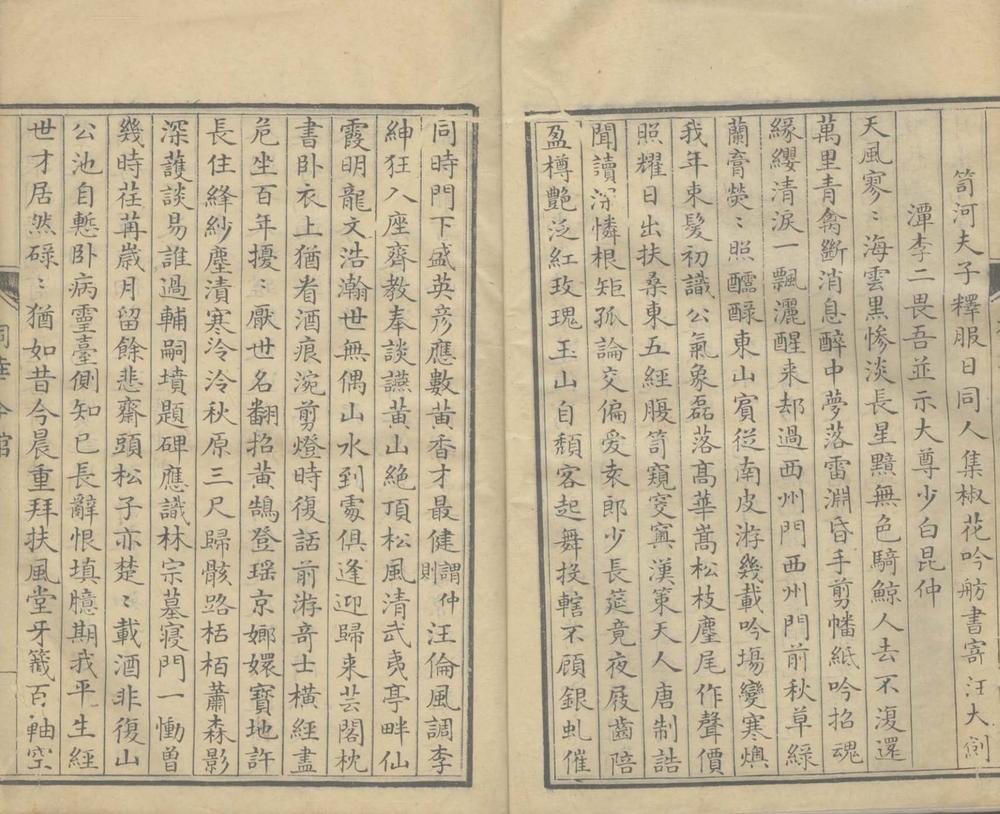 笥河夫子釋服日同人集椒花吟舫書寄汪大劍
潭李二畏吾並示大尊少白昆仲
天風寥〻海雲黑慘淡長星黯無色騎鯨人去不復還
萬里青禽斷消息醉中夢落雷淵昏手剪幡紙吟招魂
緣纓清淚一飄灑醒来却過西州門西州門前秋草綠
蘭膏熒〻照醽醁東山賓從南皮游幾載吟塲變寒燠
我年束髮初識公氣象磊落髙華嵩松枝麈尾作聲價
照耀日出扶桑東五經腹笥窺窔窴漢策天人唐制誥
聞讀深憐根矩孤論交偏愛袁郎少長筵竟夜屐齒陪
盈樽艷泛紅玫瑰玉山自頽客起舞投轄不顧銀虬催
同時門下盛英彦應數黄香才最健謂仲則汪倫風調李
紳狂入座齊教奉談讌黄山絶頂松風清武夷亭畔仙
霞明龍文浩瀚世無偶山水到處俱逢迎歸来芸閣枕
書卧衣上猶看酒痕涴剪燈時復話前游竒士橫經盡
危坐百年擾〻厭世名翻招黄鵠登瑶京嫏嬛寶地許
長住絳紗塵漬寒泠泠秋原三尺歸骸路栝栢蕭森影
深護談易誰過輔嗣墳題碑應識林宗墓寢門一慟曽
幾時荏苒歳月留餘悲齋頭松子亦楚〻載酒非復山
公池自慙卧病靈臺側知已長辭恨填臆期我平生經
世才居然碌〻猶如昔今晨重拜扶風堂牙籤百軸空